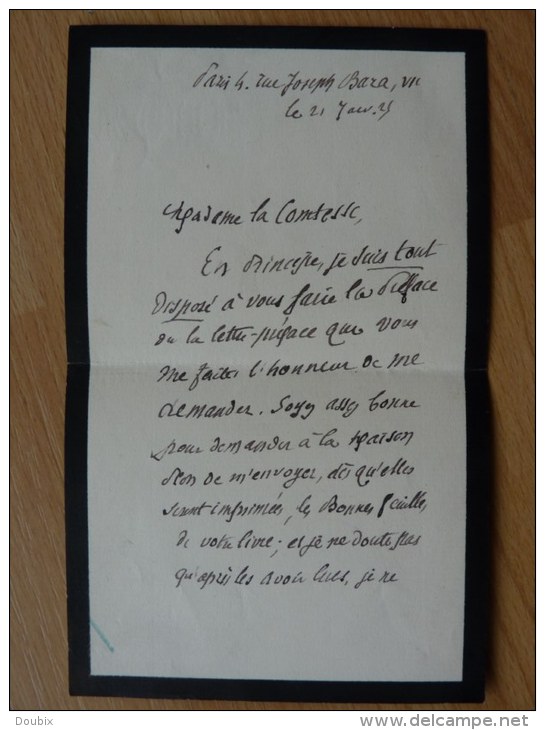 Paris 4. rue Joseph Bara, VI
le 21 Janv. 25
Madame la Comtesse,
En principe, je suis tout
disposé à vous faire la Préface
ou la lettre-préface que vous
me faites l'honneur de me
demander. Soyez assez bonne
pour demander à la Maison
Plon de m'envoyer, dès qu'elles
seront imprimées, les Bonnes feuilles
de votre livre; et je ne doute pas
qu'après les avoir lues, je ne
Doubix
www.delcampe.net